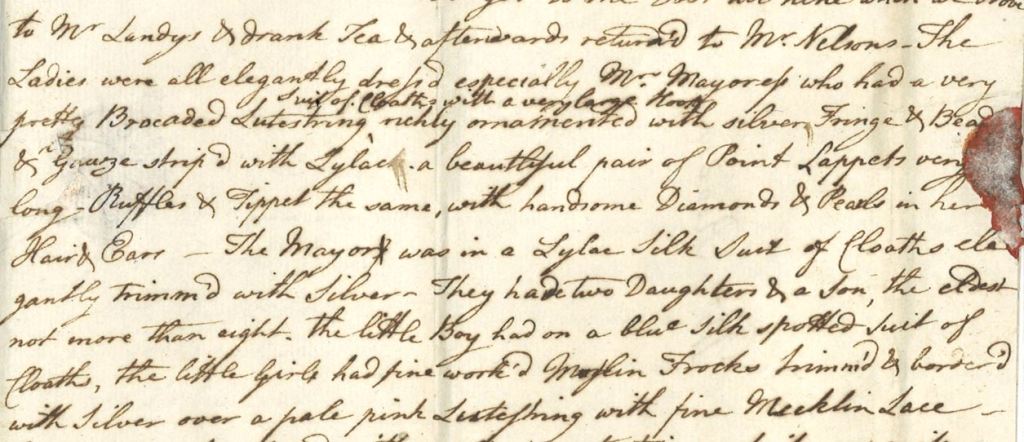 to Mr Lundys & drank Tea & afterwards return'd to Mr. Nelsons - The
Ladies were all elegantly dress'd especially Mrs. Mayoress who had a very
suit of Cloaths with a very large Hoop
pretty Brocaded Lutestring richly ornamented with silver Fringe & Bead
& Gauze strip'd with Lylac. a beautiful pair of Point Lappets very
long - Ruffles & Tippet the same, with handsome Diamonds & Pearls in her
Hair & Ears - The Mayor was in a Lylac Silk Suit of Cloaths ele
gantly trimm'd with Silver - They had two Daughters & a Son, the eldest
not more than eight. the little Boy had on a blue silk spotted suit of
Cloaths, the little Girls had fine work'd Muslin Frocks trimm'd & border'd
with Silver over a pale pink Lutestring with fine Mecklin Lace -